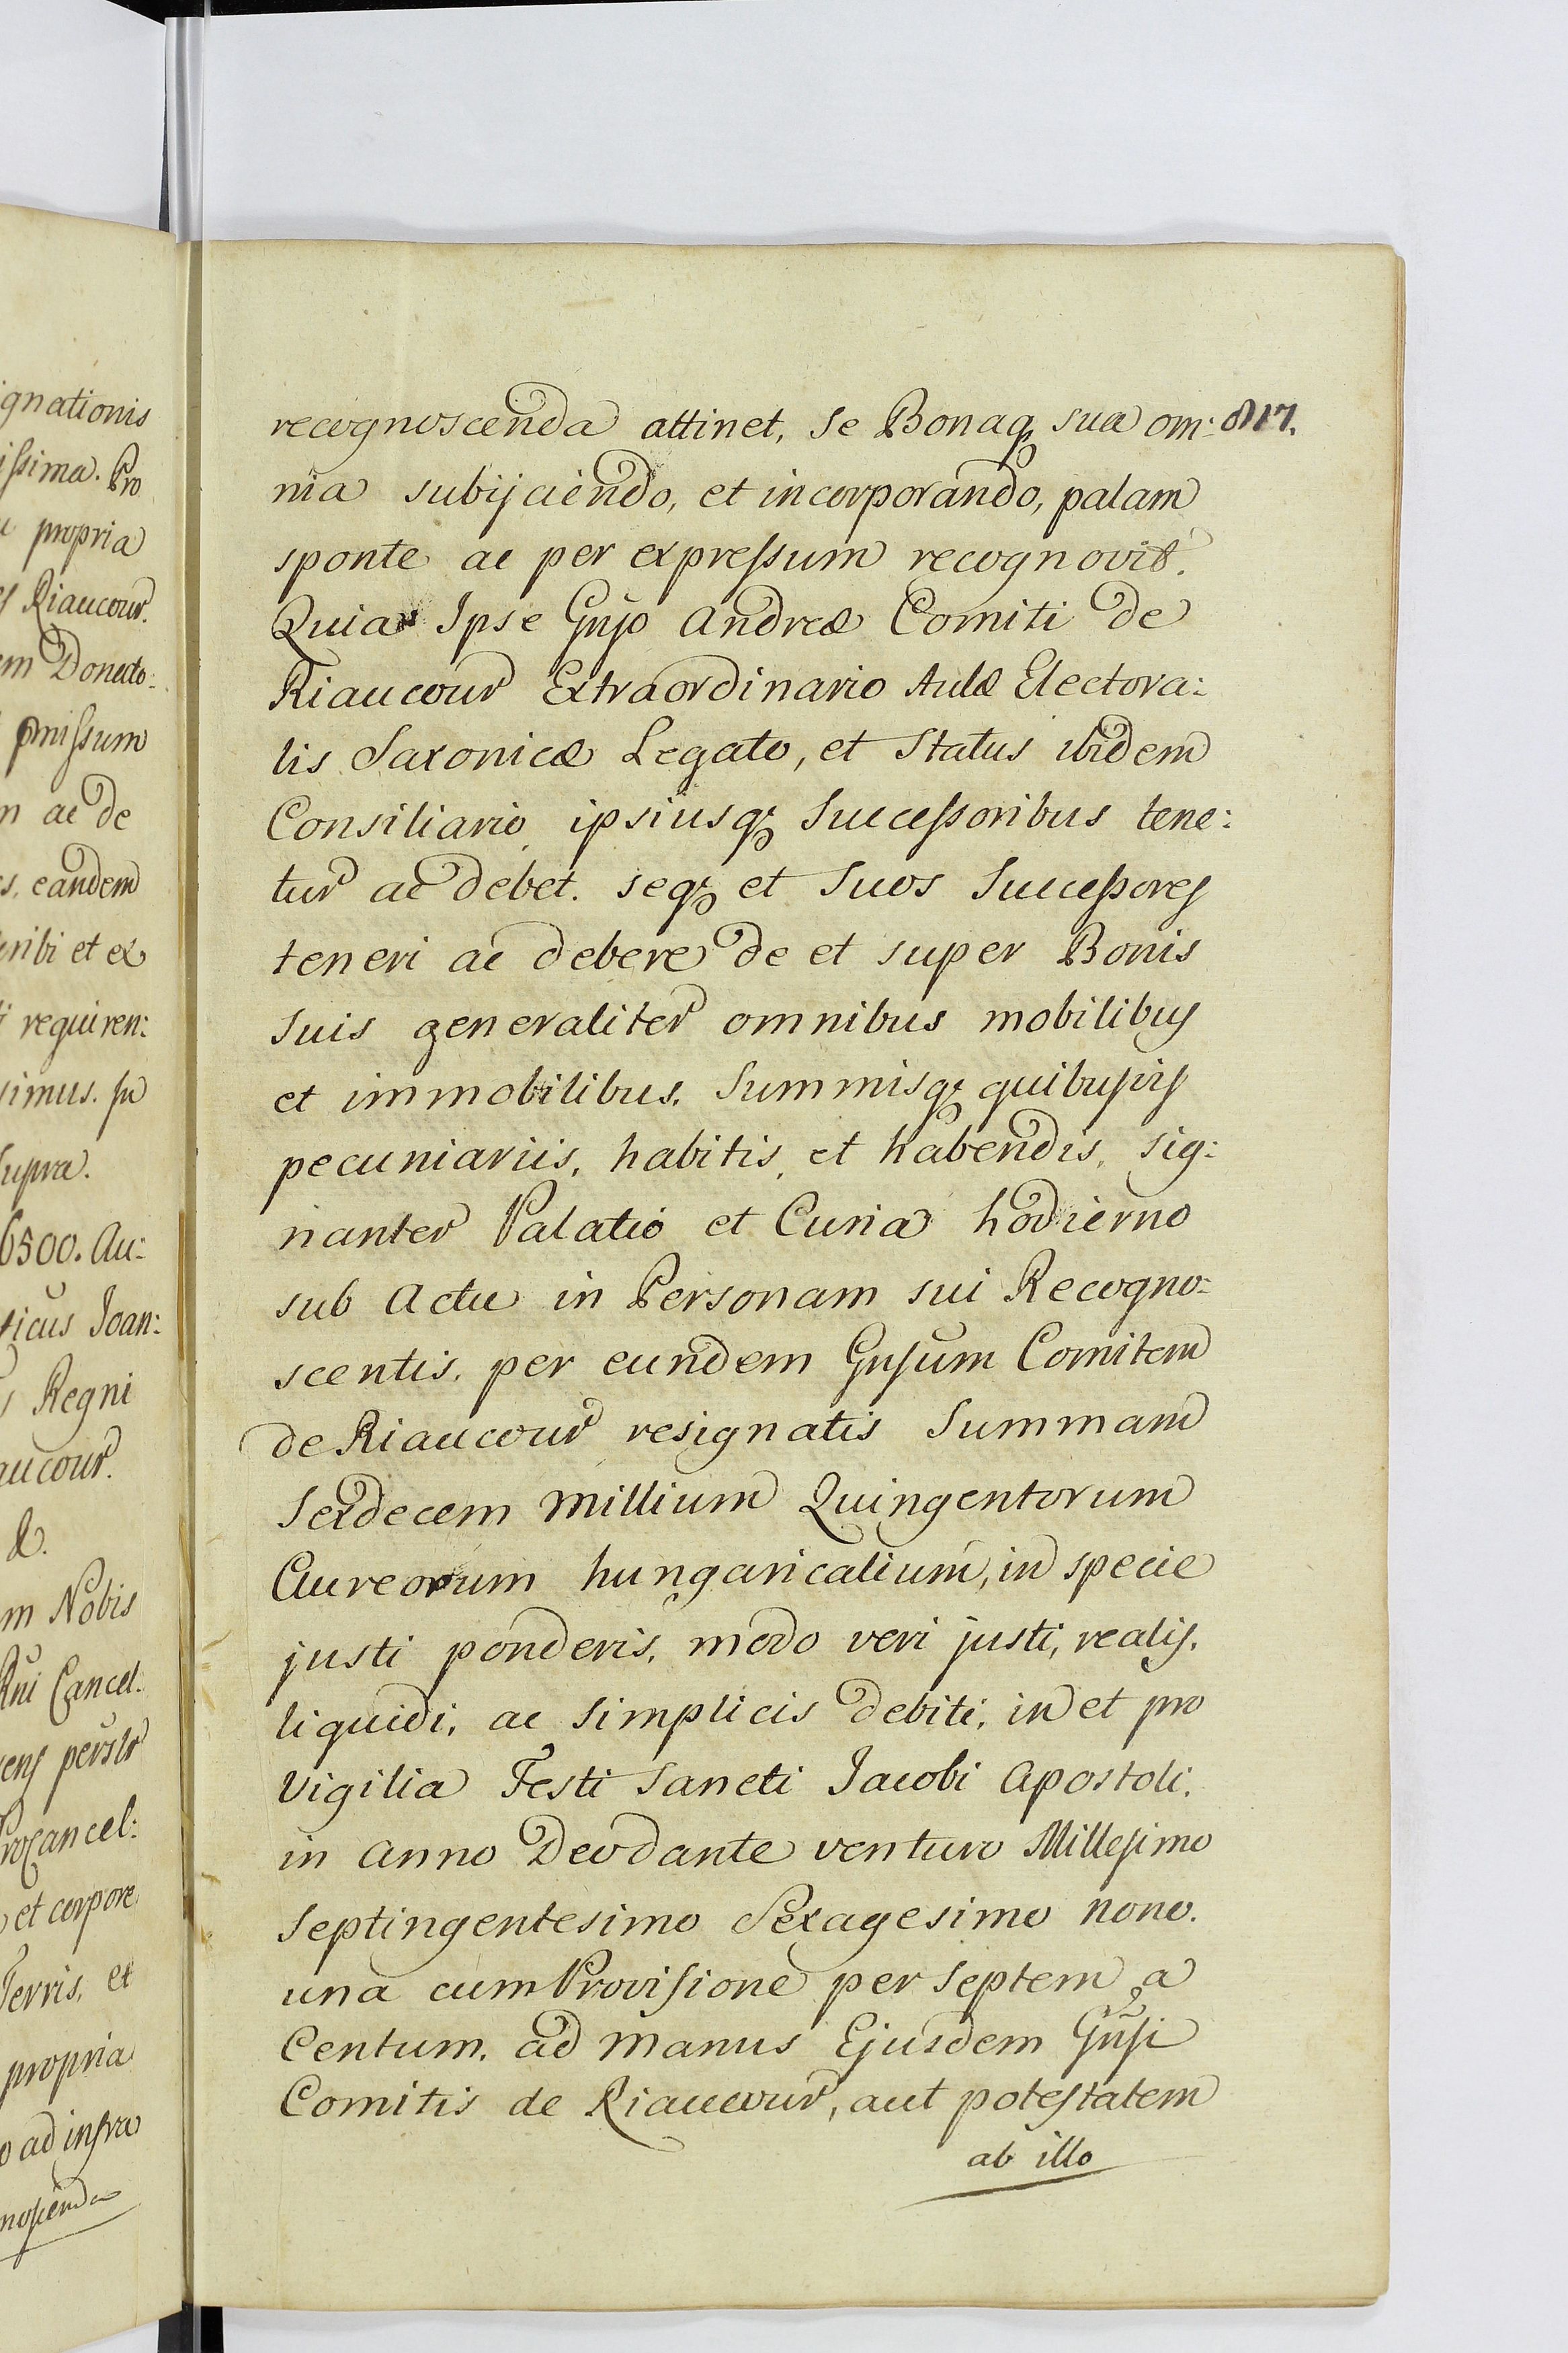 ignationis
issima. Pro
propria
Riaucour.
em Donato:
pmissum
ac de
eandem
et ex
requiren:
simus. In
supra.
6500. Au:
ticus Joan:
Regni
aucour.
&.
m Nobis
Rni Cancel:
persلr
roCancel:
et corpore
Terris, et
propria
ad infra
noscenda
recognoscenda attinet, se Bonaq sua om: 817.
nia subijciendo, et incorporando, palam
sponte ac per expressum recognovit.
Quia Ipse Gnso Andreæ Comiti de
Riaucour Extraordinario Aulæ Electora:
lis Saxonicæ Legato, et Status ibidem
Consiliario, ipsiusq Successoribus tene:
tur ac debet. seq et Suos Successores
teneri ac debere de et super Bonis
Suis generaliter omnibus mobilibus
et immobilibus, Summisq quibusvis
pecuniariis, habitis, et habendis, Sig:
nanter Palatio et Curia hodierno
sub Actu in Personam sui Recogno:
scentis, per eundem Gnsum Comitem
de Riaucour resignatis Summam
Sexdecem Millium Quingentorum
Aureorum hungaricalium, in specie
justi ponderis, modo veri justi, realis,
liquidi, ac Simplicis debiti, in et pro
Vigilia Festi Sancti Jacobi Apostoli,
in Anno Deo dante venturo Millesimo
Septingentesimo Sexagesimo nono.
una cum Provisione per Septem a
Centum, ad Manus Ejusdem Gnsi
Comitis de Riaucour, aut potestatem
ab illo